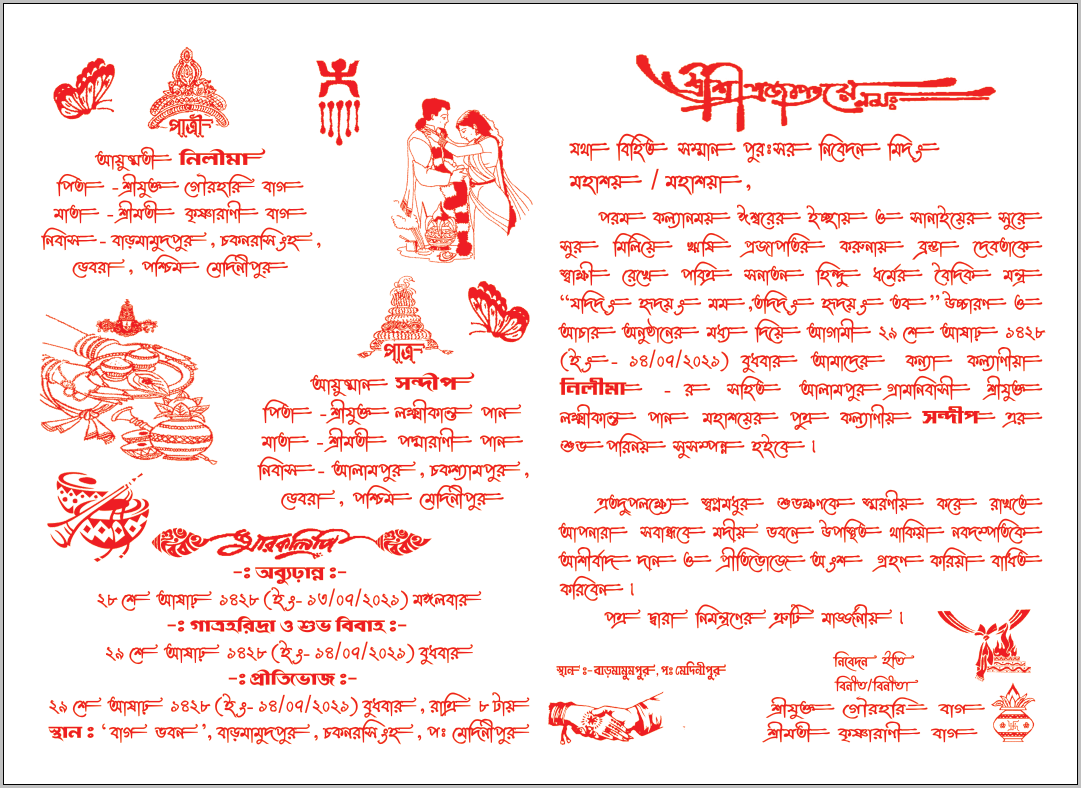 পাত্রী
আয়ুষ্মতী নিলীমা
পিতা - শ্রীযুক্ত গৌরহরি বাগ
মাতা - শ্রীমতী কৃষ্ণারাণী বাগ
নিবাস - বাড়মামুদপুর , চকনরসিংহ ,
ডেবরা , পশ্চিম মেদিনীপুর
পাত্র
আয়ুষ্মান সন্দীপ
পিতা - শ্রীযুক্ত লক্ষ্মীকান্ত পান
মাতা - শ্রীমতী পদ্মারাণী পান
নিবাস - আলামপুর , চকশ্যামপুর ,
ডেবরা , পশ্চিম মেদিনীপুর
শুভ বিবাহ স্মারকলিপি শুভ বিবাহ
-ঃ অব্যুঢ়ান্ন ঃ-
২৮ শে আষাঢ় ১৪২৮ (ইং- ১৩/০৭/২০২১) মঙ্গলবার
-ঃ গাত্রহরিদ্রা ও শুভ বিবাহ ঃ-
২৯ শে আষাঢ় ১৪২৮ (ইং- ১৪/০৭/২০২১) বুধবার
-ঃ প্রীতিভোজ ঃ-
২৯ শে আষাঢ় ১৪২৮ (ইং- ১৪/০৭/২০২১) বুধবার , রাত্রি ৮ টায়
স্থান ঃ ‘বাগ ভবন’, বাড়মামুদপুর , চকনরসিংহ , পঃ মেদিনীপুর
শ্রীশ্রী প্রজাপতয়ে নমঃ
যথা বিহিত সম্মান পুরঃসর নিবেদন মিদং
মহাশয় / মহাশয়া ,
পরম কল্যানময় ঈশ্বরের ইচ্ছায় ও সানাইয়ের সুরে
সুর মিলিয়ে ঋষি প্রজাপতির করুনায় ব্রহ্মা দেবতাকে
স্বাক্ষী রেখে পবিত্র সনাতন হিন্দু ধর্মের বৈদিক মন্ত্র
“যদিদং হৃদয়ং মম ,তদিদং হৃদয়ং তব” উচ্চারণ ও
আচার অনুষ্ঠানের মধ্য দিয়ে আগামী ২৯ শে আষাঢ় ১৪২৮
(ইং - ১৪/০৭/২০২১) বুধবার আমাদের কন্যা কল্যাণীয়া
নিলীমা - র সহিত আলামপুর গ্রামনিবাসী শ্রীযুক্ত
লক্ষ্মীকান্ত পান মহাশয়ের পুত্র কল্যাণীয় সন্দীপ এর
শুভ পরিনয় সুসম্পন্ন হইবে ।
এতদুপলক্ষ্যে স্বপ্নমধুর শুভক্ষণকে স্মরণীয় করে রাখতে
আপনারা সবান্ধবে মদীয় ভবনে উপস্থিত থাকিয়া নবদম্পতিকে
আশীর্বাদ দান ও প্রীতিভোজে অংশ গ্রহণ করিয়া বাধিত
করিবেন ।
পত্র দ্বারা নিমন্ত্রণের ত্রুটি মার্জ্জনীয় ।
স্থান ঃ- বাড়মামুদপুর , পঃ মেদিনীপুর
নিবেদন ইতি
বিনীত/বিনীতা
শ্রীযুক্ত গৌরহরি বাগ
শ্রীমতী কৃষ্ণারাণী বাগ